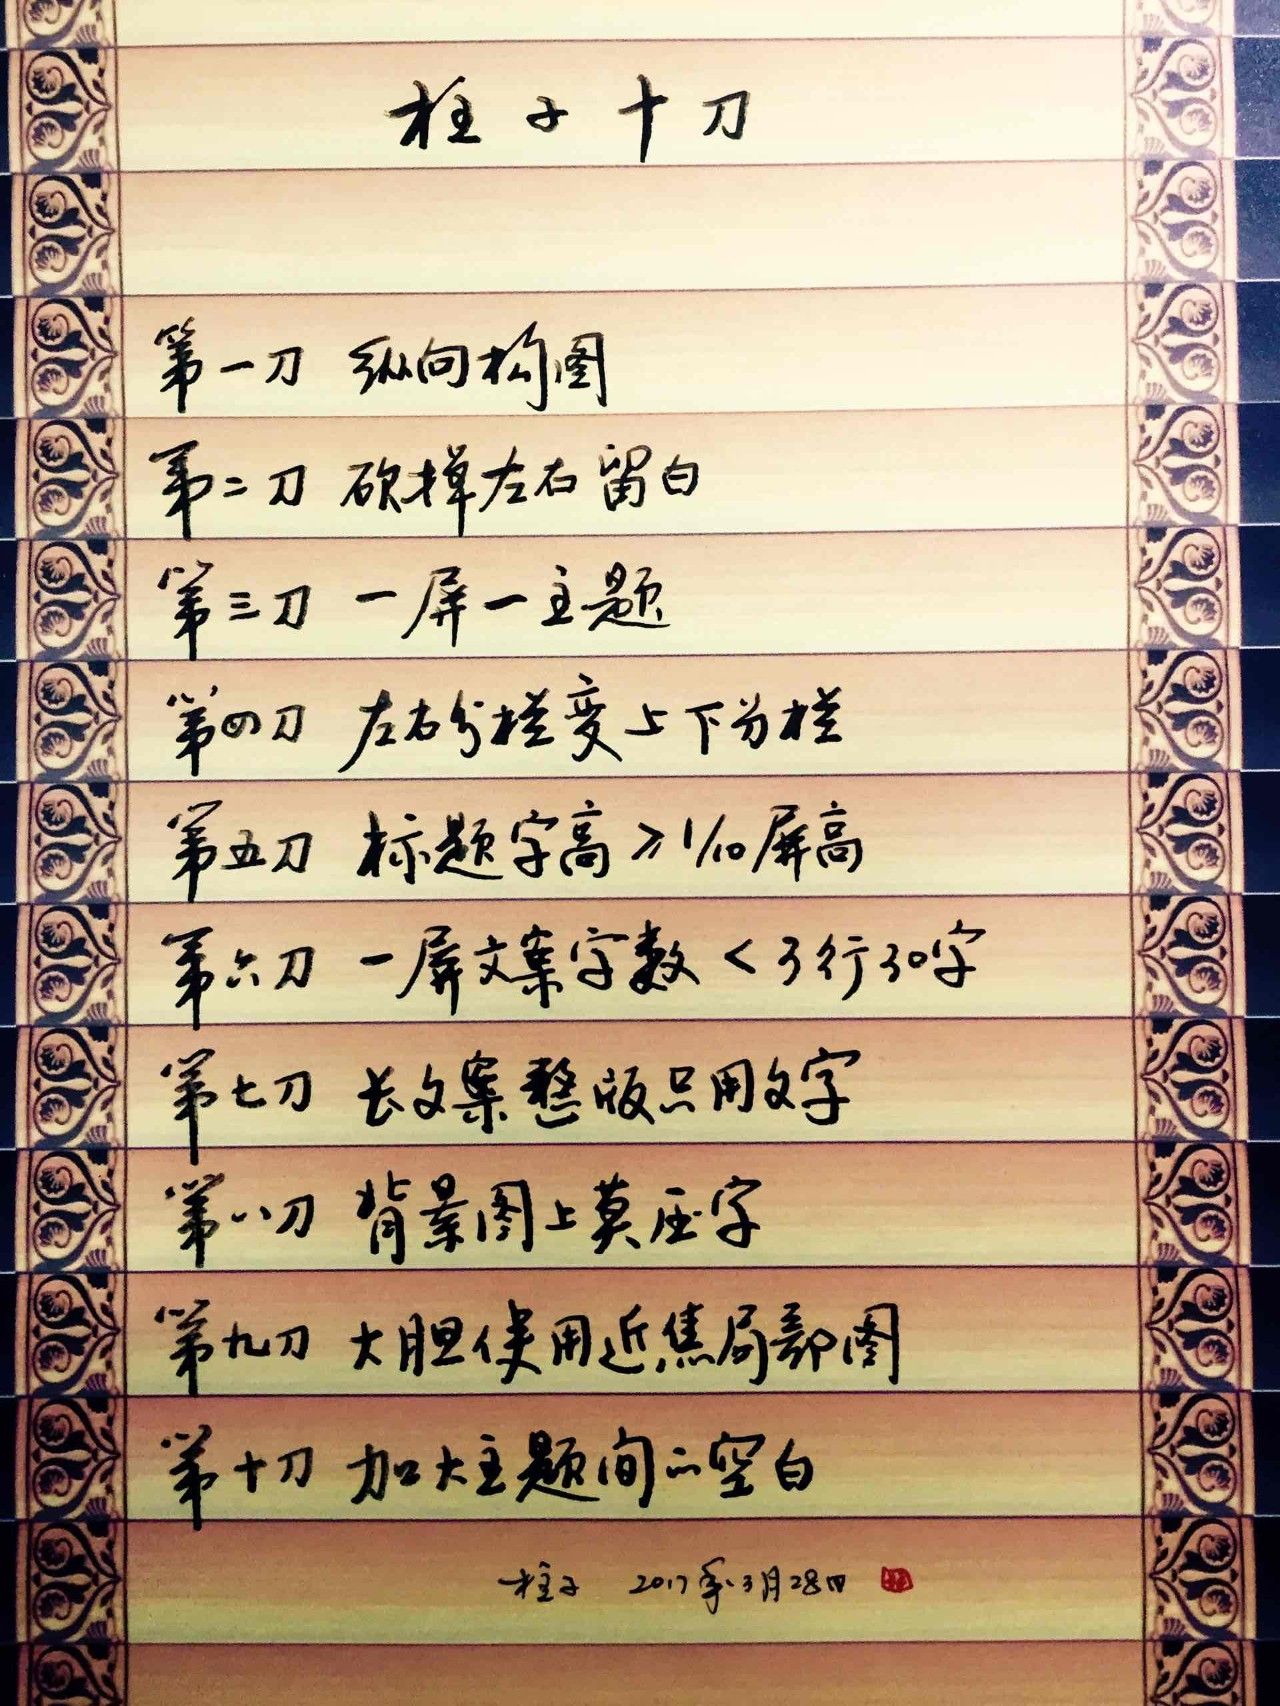 柱子十刀
第一刀 纵向构图
第二刀 砍掉左右留白
第三刀 一屏一主题
第四刀 左右分栏变上下分栏
第五刀 标题字高≥1/10屏高
第六刀 一屏文案字数<3行30字
第七刀 长文案整版只用文字
第八刀 背景图上莫压字
第九刀 大胆使用近焦局部图
第十刀 加大主题间的空白
柱子 2017年3月28日